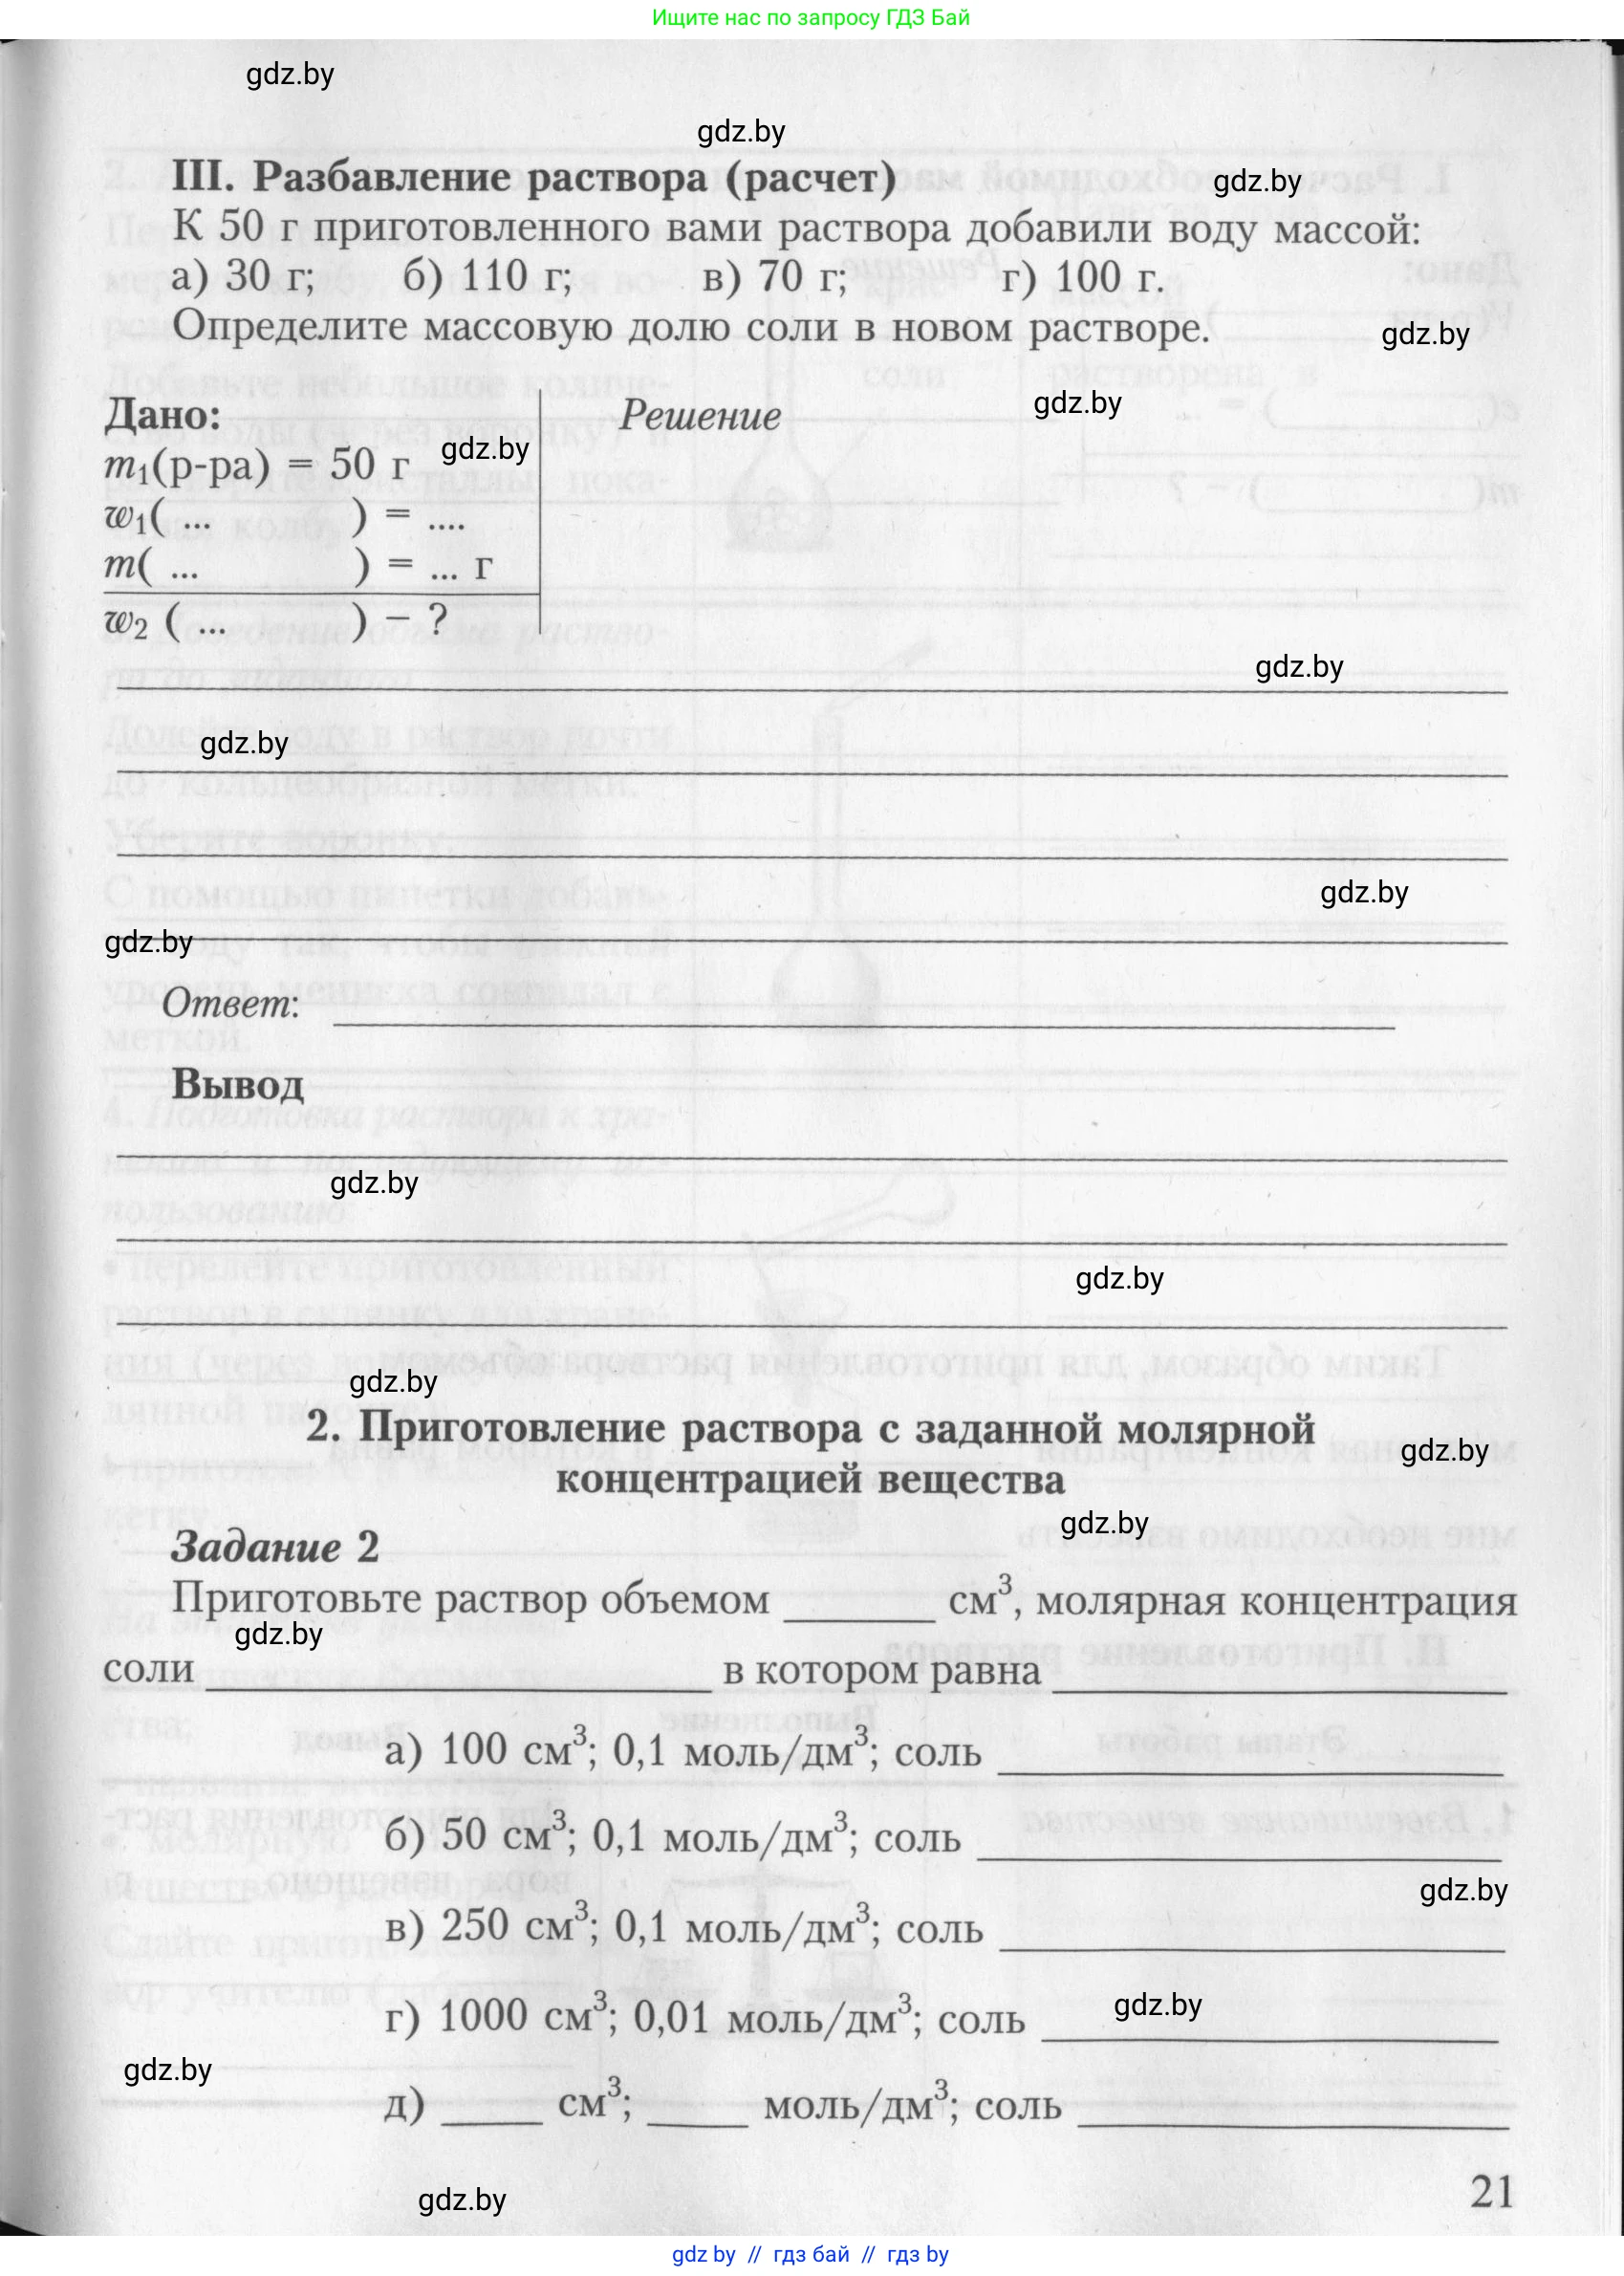 Ищите нас по запросу ГДЗ Бай
gdz.by
gdz.by
III. Разбавление раствора (расчет)
gdz.by
К 50 г приготовленного вами раствора добавили воду массой:
а) 30 г; б) 110 г; в) 70 г; г) 100 г.
Определите массовую долю соли в новом растворе.
gdz.by
Дано:
Решение
gdz.by
gdz.by
m₁(р-ра) = 50 г
w₁( ... ) = ....
m( ... ) = ... г
w₂ ( ... ) – ?
gdz.by
gdz.by
gdz.by
gdz.by
Ответ:
Вывод
gdz.by
gdz.by
gdz.by
2. Приготовление раствора с заданной молярной
gdz.by
концентрацией вещества
gdz.by
Задание 2
Приготовьте раствор объемом ______ см³, молярная концентрация
gdz.by
соли ______ в котором равна ______
а) 100 см³; 0,1 моль/дм³; соль ______
б) 50 см³; 0,1 моль/дм³; соль ______
gdz.by
в) 250 см³; 0,1 моль/дм³; соль ______
gdz.by
г) 1000 см³; 0,01 моль/дм³; соль ______
gdz.by
д) ____ см³; ____ моль/дм³; соль ______
21
gdz.by
gdz by // гдз бай // гдз by